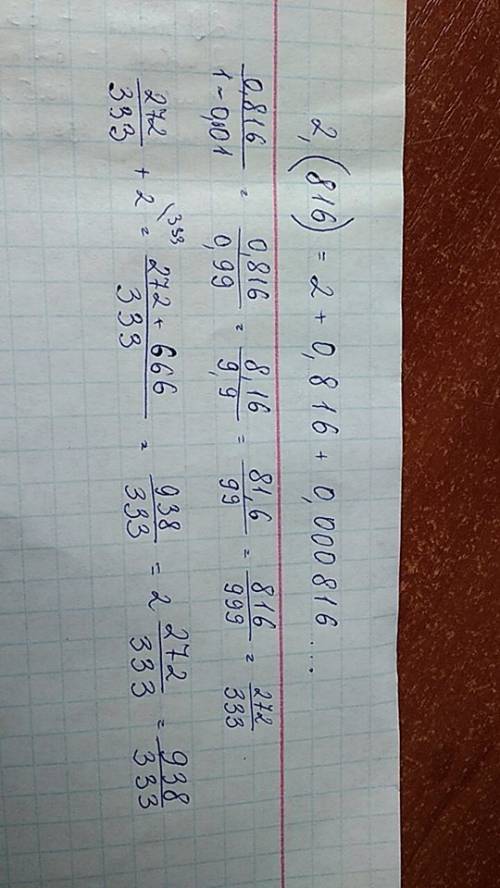 2,(816) = 2 + 0,816 + 0,000816 ...
0,816/1-0,01 = 0,816/0,99 = 8,16/9,9 = 81,6/99 = 816/999 = 272/333
272/333 + 2 (333 = 272+666/333 = 938/333 = 2 272/333 = 938/333